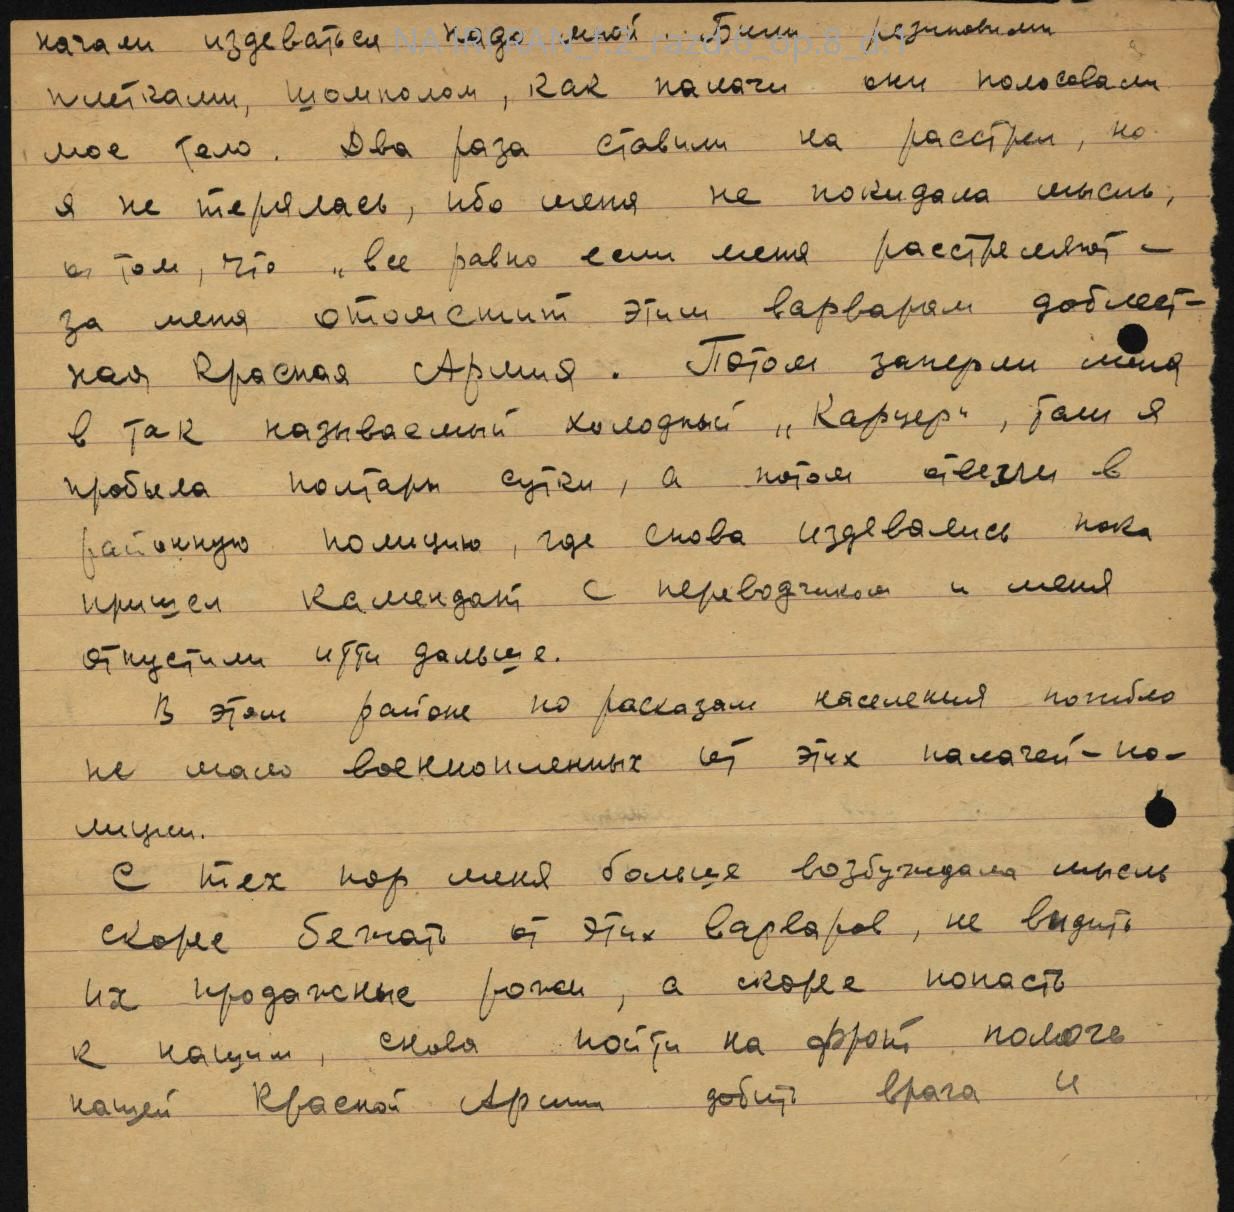 начали издеваться надо мной. Били резиновыми
плетками, шомполом, как палачи они полосовали
мое тело. Два раза ставили на расстрел, но
я не терялась, ибо меня не покидала мысль,
о том, что „все равно если меня расстреляют –
за меня отомстит этим варварам доблест-
ная Красная Армия. Потом заперли меня
в так называемый холодный „Карцер“, там я
пробыла полтары сутки, а потом отвезли в
районную полицию, где снова издевались пока
пришел камендант с переводчиком и меня
отпустили итти дальше.
В этом районе по расказам населения погибло
не мало военнопленных от этих палачей-по-
лицаи.
С тех пор меня больше возбуждала мысль
скорее бежать от этих варваров, не видить
их продажные рожи, а скорее попасть
к нашим, снова пойти на фронт помочь
нашей Красной Армии добить врага и